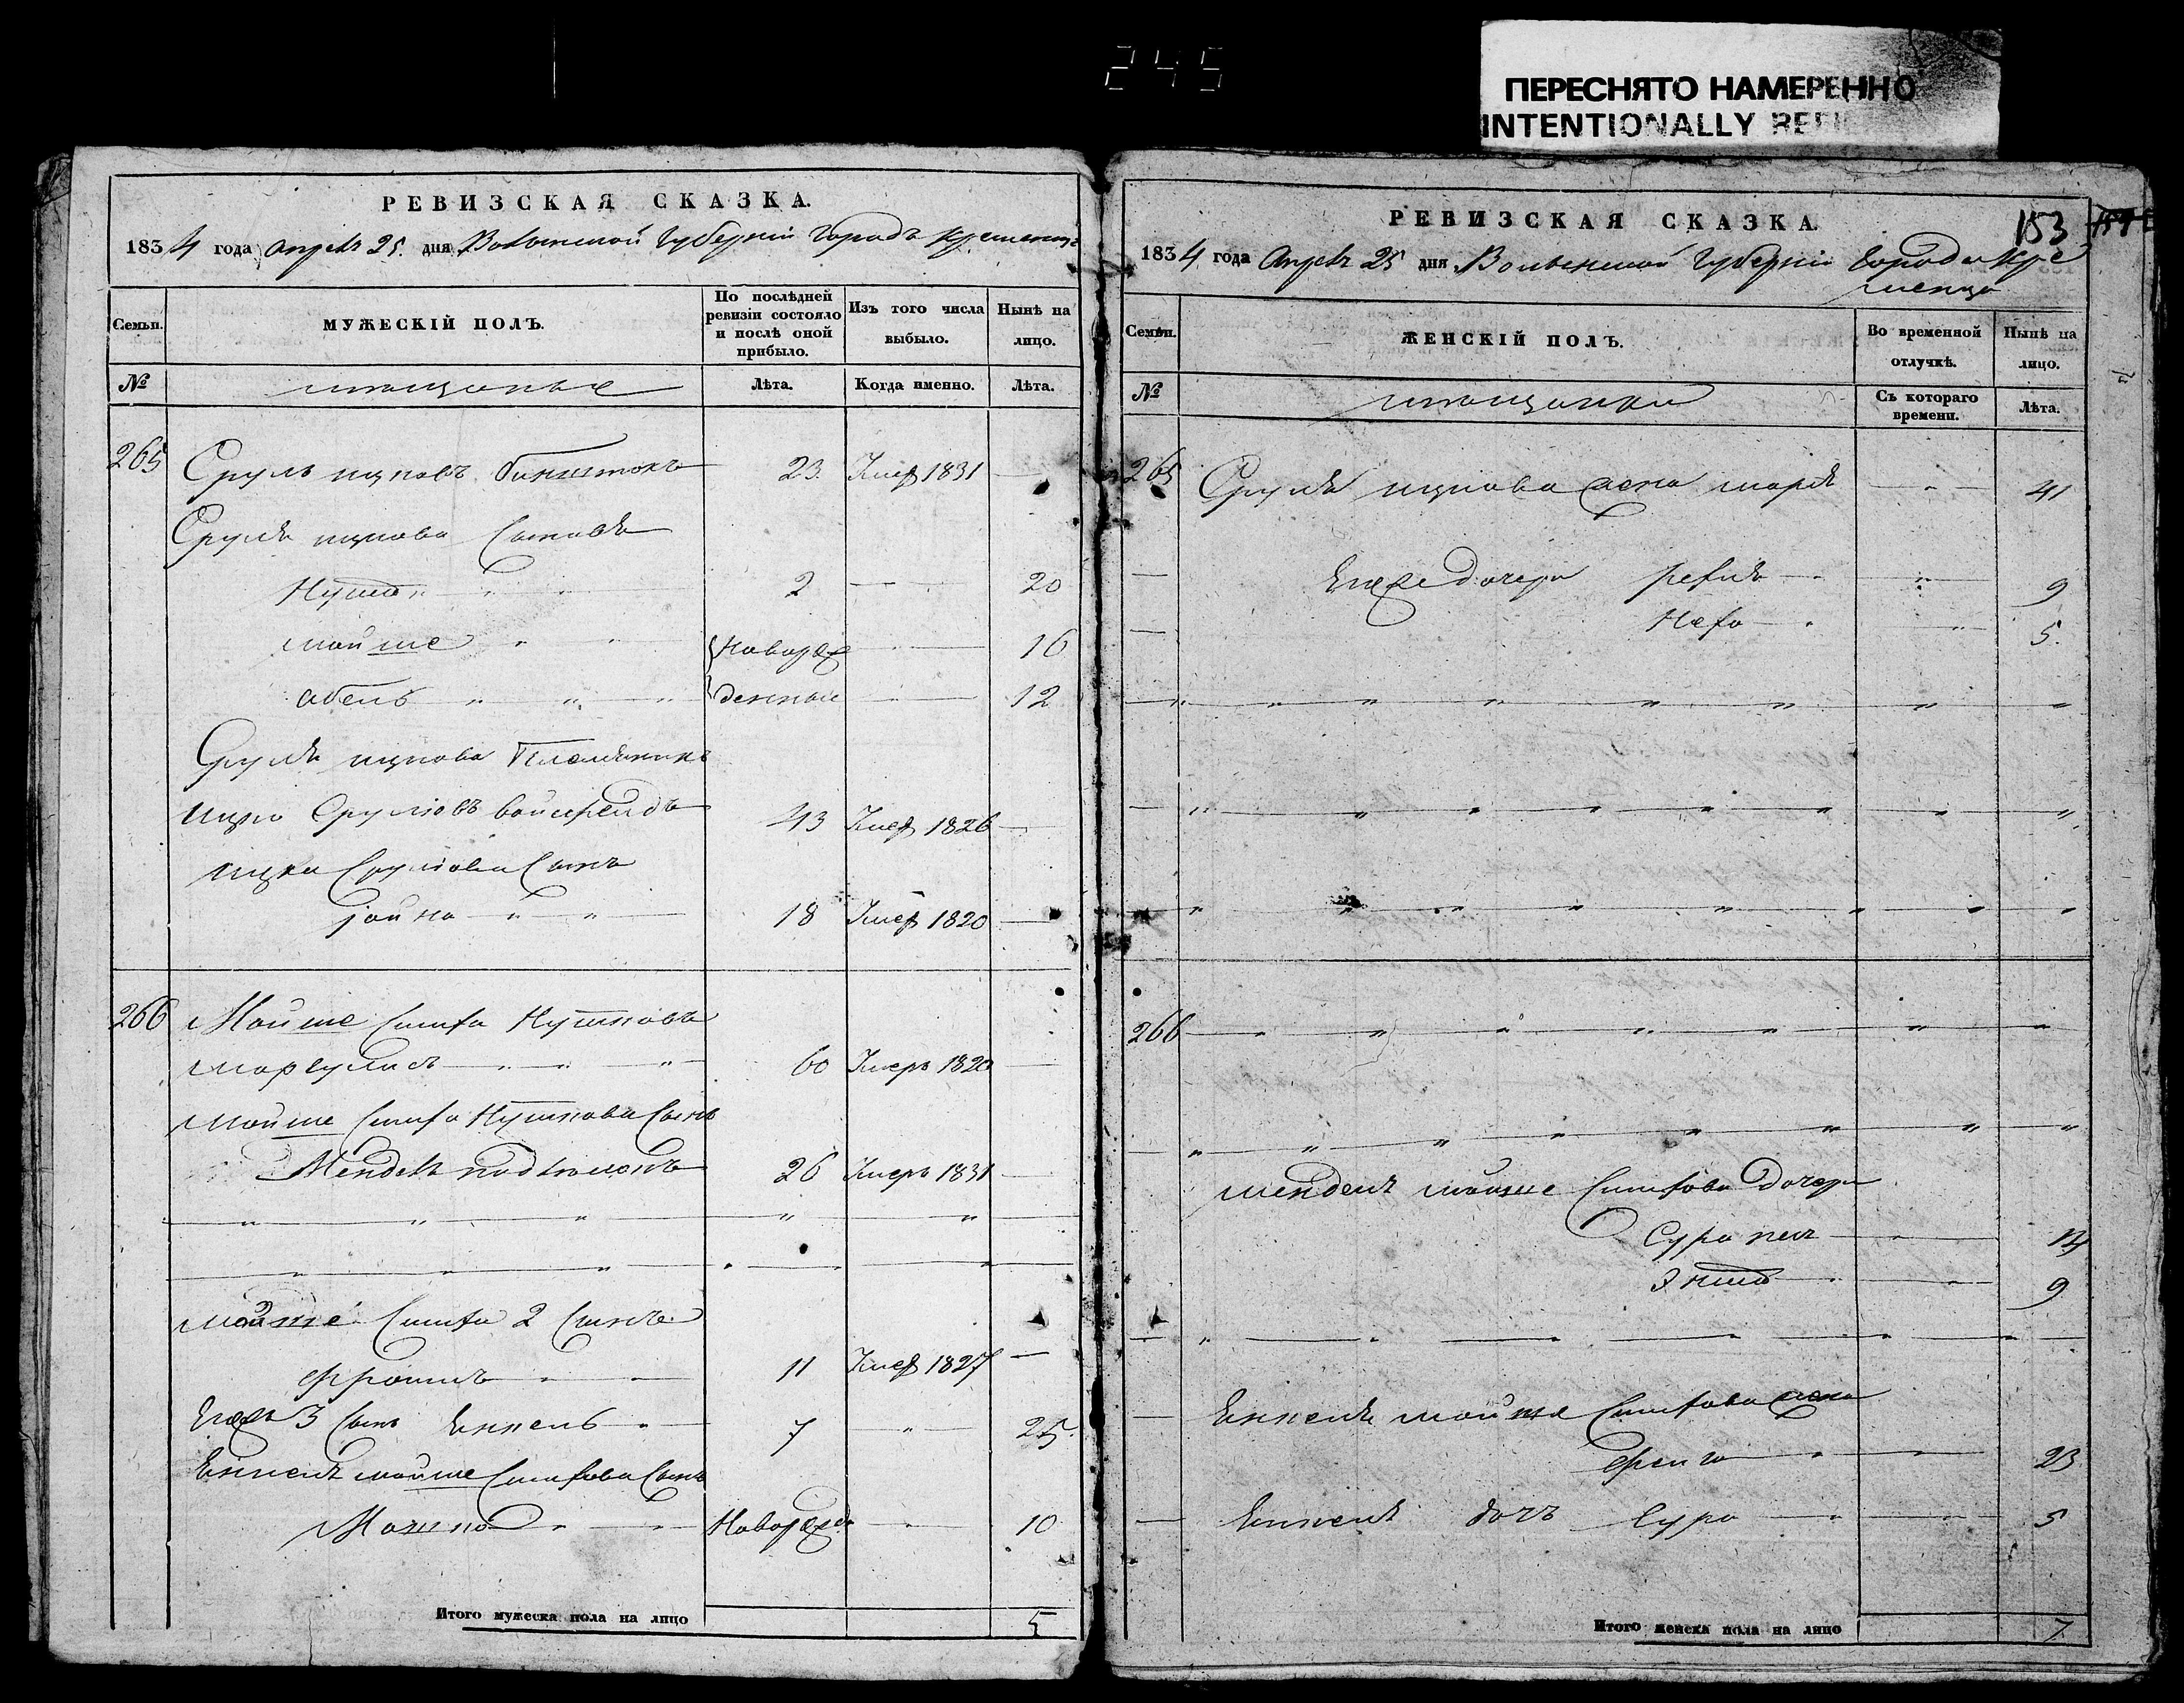 245
ПЕРЕСНЯТО НАМЕРЕННО
INTENTIONALLY
РЕВИЗСКАЯ СКАЗКА.
1834 года Апреля 25. дня Волынской Губерніи города Кременца
Семьи.
МУЖЕСКІЙ ПОЛЪ.
По послѣдней ревизіи состояло и послѣ оной прибыло.
Изъ того числа выбыло.
Нынѣ на лицо.
№
мещанъе
Лѣта.
Когда именно.
Лѣта.
265 Сруль ицковъ 23. Умер 1831
Сруля ицкова Сыновья
Нутон 2 20
мойше Новорож 16
абель денные 12
Сруля ицкова Племянникъ
ицко Срулювъ 43 Умер 1826
ицка Срулюва Сынъ
іойна 18 Умер 1820
266 Мойше Симха Нутковъ
Маргулисъ 60 Умеръ 1820
Мойше Симха Нуткова Сынъ
Мендель 26 Умеръ 1831
Мойше Симхи 2 Сынъ
Фроимъ 11 Умер 1827
Егож 3 Сынъ Енкель 7 25.
Енкеля мойше Симхова Сынъ
Мошко Новорожд 10
Итого мужеска пола на лицо 5
РЕВИЗСКАЯ СКАЗКА.
153
1834 года Апреля 25 дня Волынской Губерніи города Кре
менца
Семьи.
ЖЕНСКІЙ ПОЛЪ.
Во временной отлучкѣ.
Нынѣ на лицо.
№
мещанки
Съ котораго времени.
Лѣта.
265 Сруля ицкова жена 41
Егоже дочери 9
5.
266
Мендель мойше Симхова дочери
Сура
9
Енкеля мойше Симхова жена
23
Енкеля дочь Сура 5
Итого женска пола на лицо 7